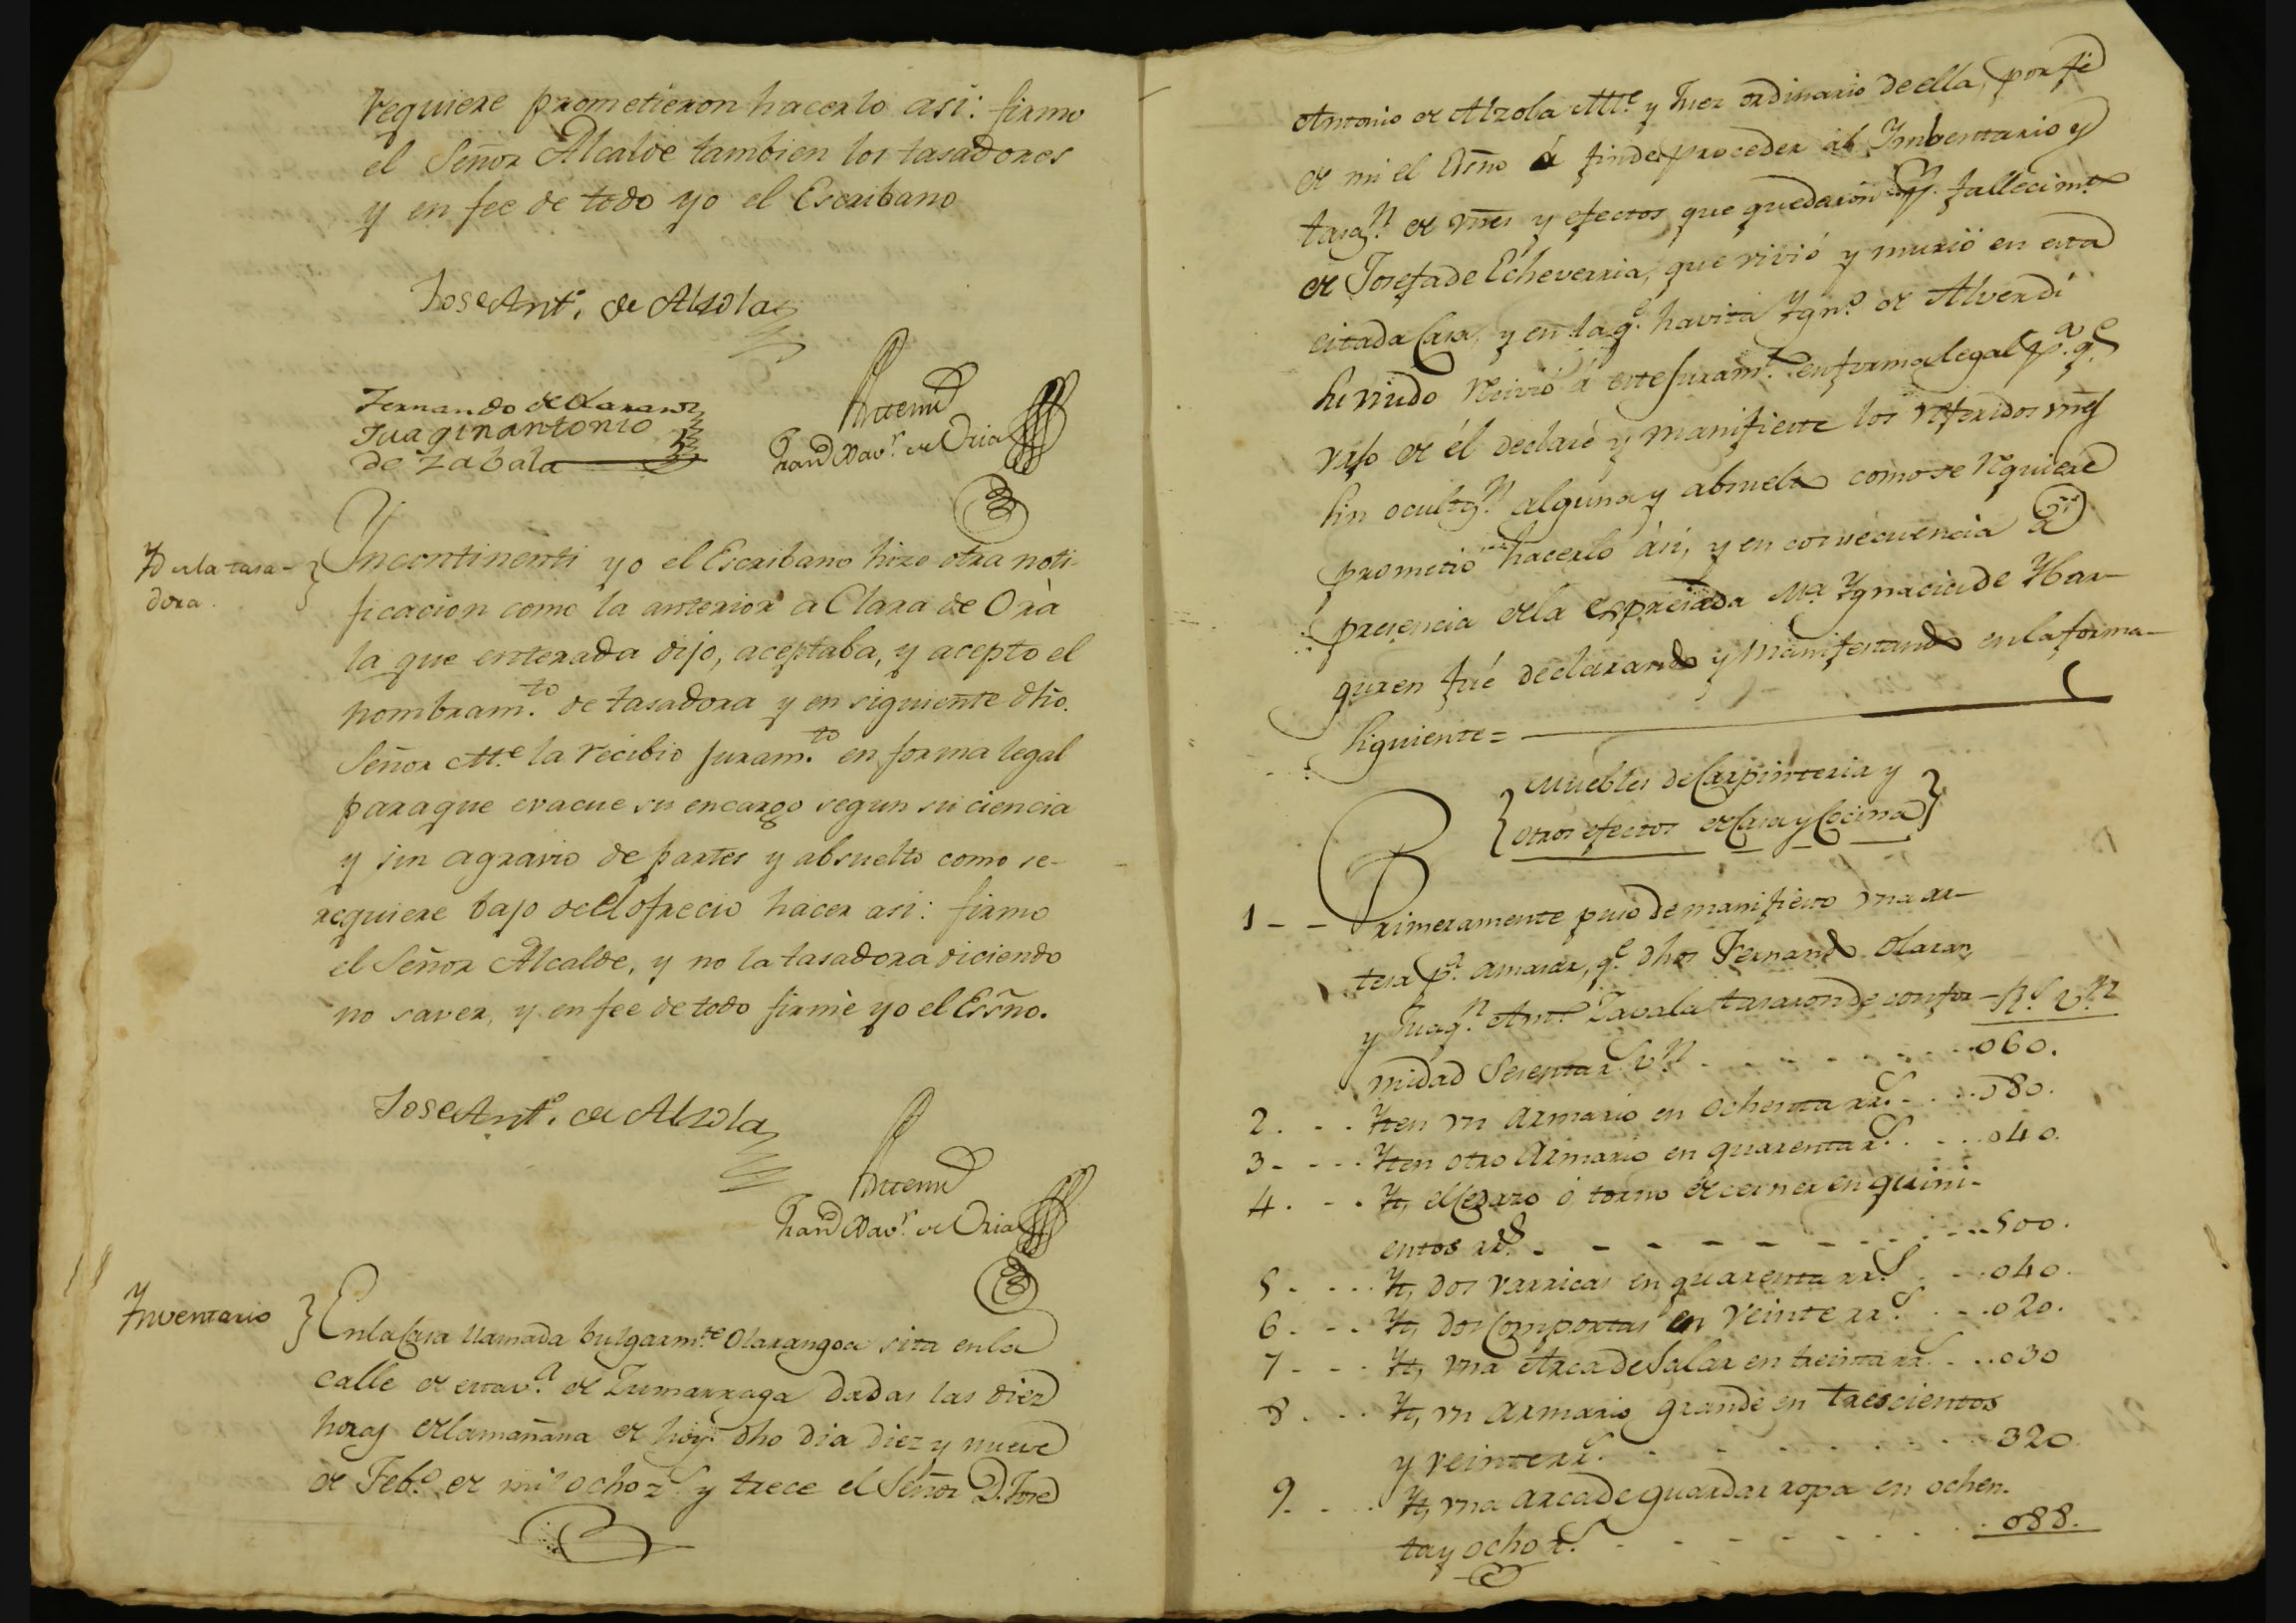 requiere prometieron hacerlo asi: firmo
el Señor Alcalde tambien los tasadores
y en fee de todo yo el Escribano
Jose Ant.º de Alzola
Fernando de Olaran
Juaqin antonio
de Zabala
Antemi
Fran.co Xav.r de Oria
Yd a la tasa-
dora.
Yncontinenti yo el Escribano hize otra noti-
ficacion como la anterior a Clara de Orà
la que enterada dijo, aceptaba, y acepto el
nombram.to de tasadora y en siguiente dho.
Señor All.e la recibio juram.to en forma legal
paraque evacue su encargo segun su ciencia
y sin agravio de partes y absuelto como se-
requiere bajo de el ofrecio hacer asi: firmo
el Señor Alcalde, y no la tasadora diciendo
no saver, y en fee de todo firmè yo el Essño.
Jose Ant.º de Alzola
Antemi
Fran.co Xav.r de Oria
Ynventario
En la Casa llamada bulgarm.te Olarangoa sita en la
calle de esta v.a de Zumarraga dadas las diez
horas de la mañana de hoy dho dia diez y nueve
de Feb.o de mil ocho z.s y trece el Señor D. Jose
Antonio de Alzola All.e y Juez ordinario de ella, por fe
de mi el Essño á fin de proceder al Ymbentario y
tasaz.n de vnes y efectos que quedaron p.r fallecim.to
de Josefa de Echeverria, que vivió y murió en esta
citada Casa, y en la q.e havita Ygn.o de Alverdi
su viudo recivió á este juram.to en forma legal p.a q.e
vajo de él declare y manifieste los referidos vnes
sin ocultaz.n alguna y absuelto como se requiere
prometió hacerlo así, y en consecuencia á
presencia de la expresada M.a Ygnacia de Ybar-
guren fué declarando y manifestando en la forma-
siguiente=
Muebles de Carpinteria y
otros efectos de Casa y Cocina
1 - - Primeramente puso de manifiesto vna ar-
tesa p.a amasar, q.e dhos Fernando Olaran,
y Juaq.n Ant.o Zavala tasaron de confor- R.s v.n
midad Sesenta r.s v.n 060.
2. - - Yten vn armario en ochenta rr.s 080.
3 - - - Yten otro Armario en quarenta r.s 040.
4. - - Yt, el Cedazo ó torno de cerner en quini-
entos rr.s 500.
5 - - - Yt, dos varricas en quarenta rr.s 040.
6. - - Yt, dos Comportas en veinte rr.s 020.
7 - - - Yt, vna Arca de Salar en treinta rr.s 030
8. - - Yt, vn armario grande en trescientos
y veinte rr.s 320
9. - - Yt, vna arca de guardar ropa en ochen-
ta y ocho r.s 088.